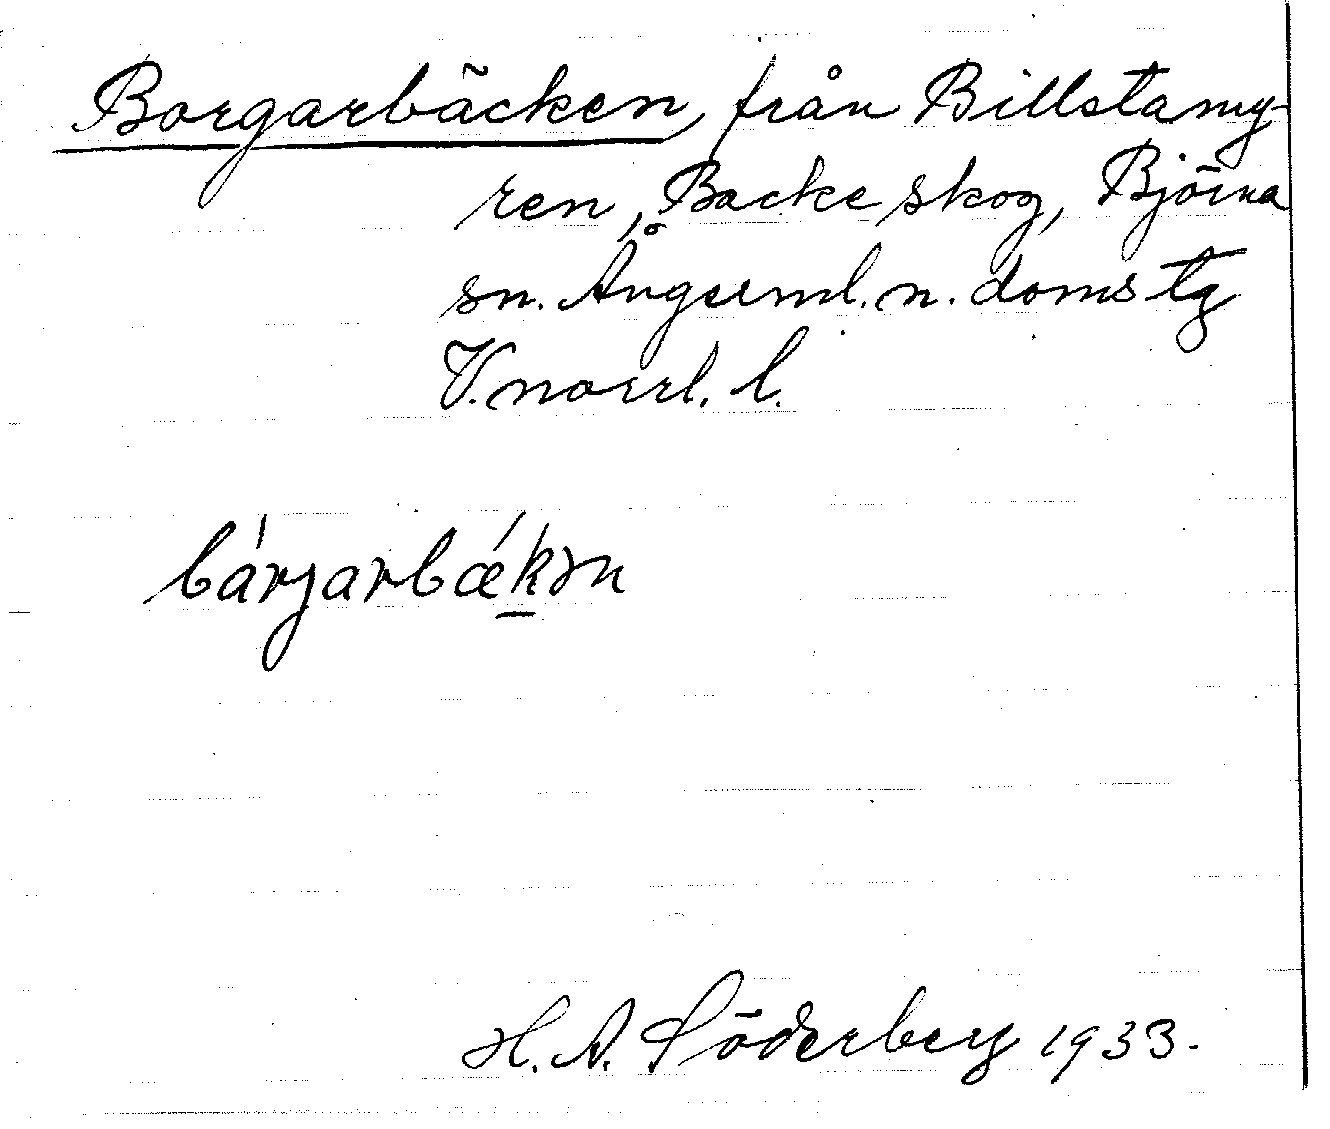 Borgarbäcken, från Billstamy-
ren, Backe skog, Björna
sn. Ångerml. n. doms tg
V. norrl. l.
bárjarbǽkən
H. A. Söderberg 1933.